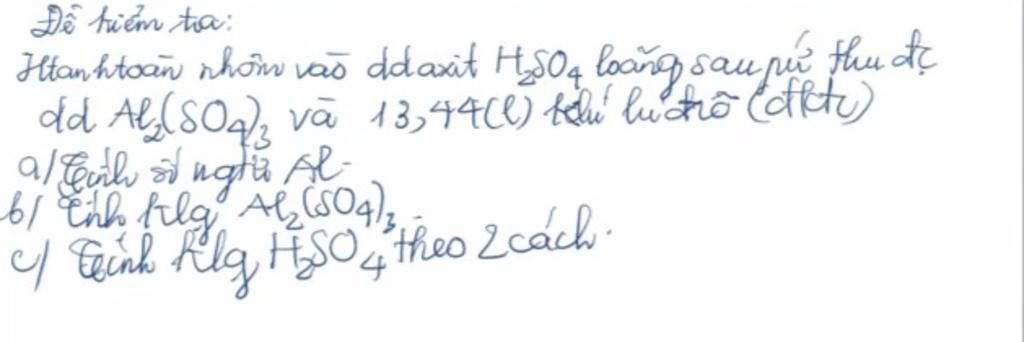 Đề kiểm tra:
Htan htoàn nhôm vào dd axit H₂SO₄ loãng sau pứ thu đc
dd Al₂(SO₄)₃ và 13,44(l) khí hiđrô (đktc)
a/ Tính số ngtử Al.
b/ Tính klg Al₂(SO₄)₃
c/ Tính klg H₂SO₄ theo 2 cách.